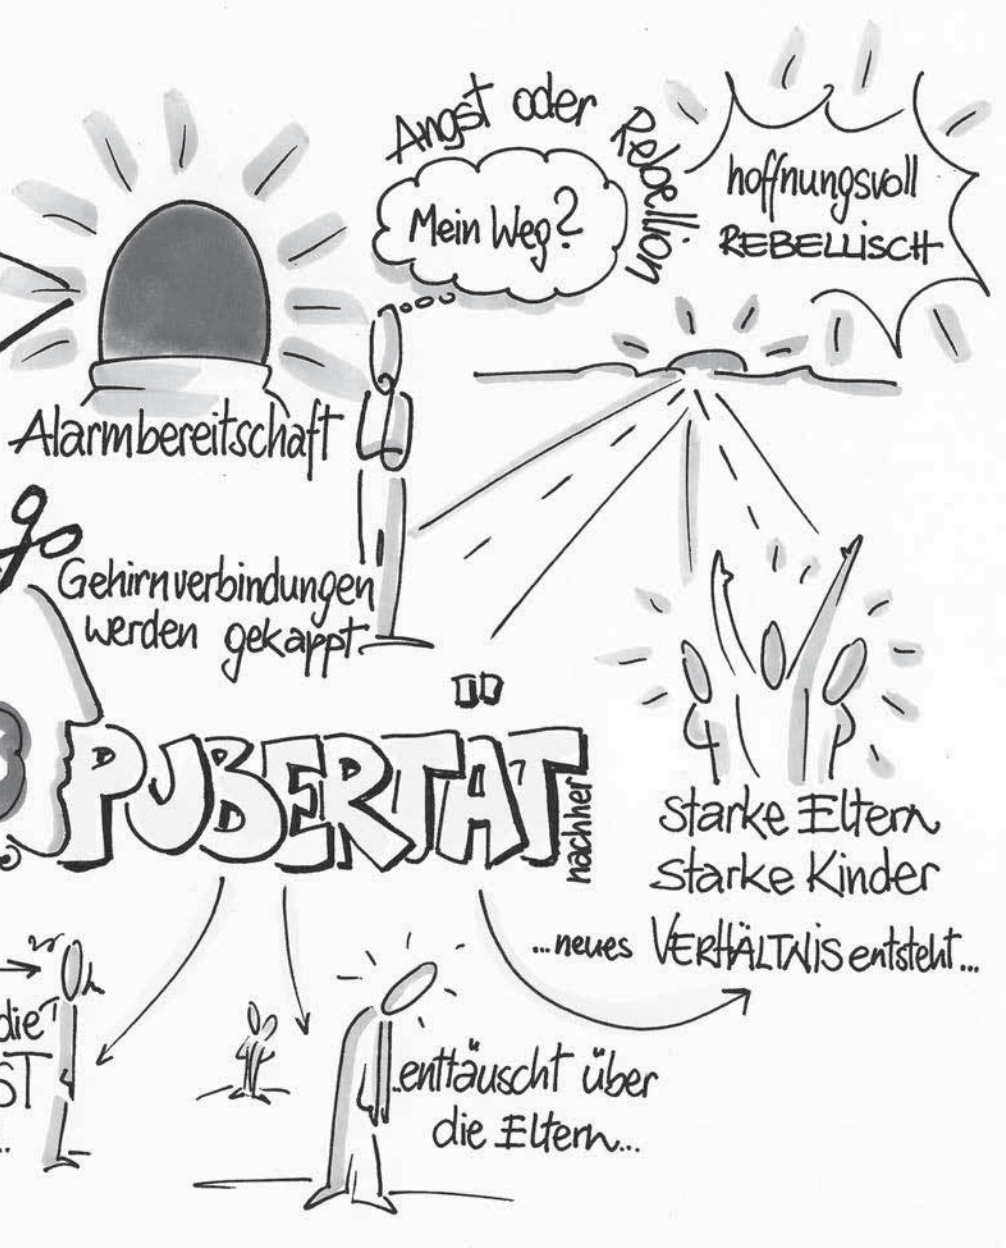 Angst oder Rebellion
Mein Weg?
hoffnungsvoll
REBELLISCH
Alarmbereitschaft
Gehirnverbindungen
werden gekappt
PUBERTÄT
nachher
starke Eltern
starke Kinder
...neues VERHÄLTNIS entsteht...
die
ST
..enttäuscht über
die Eltern...